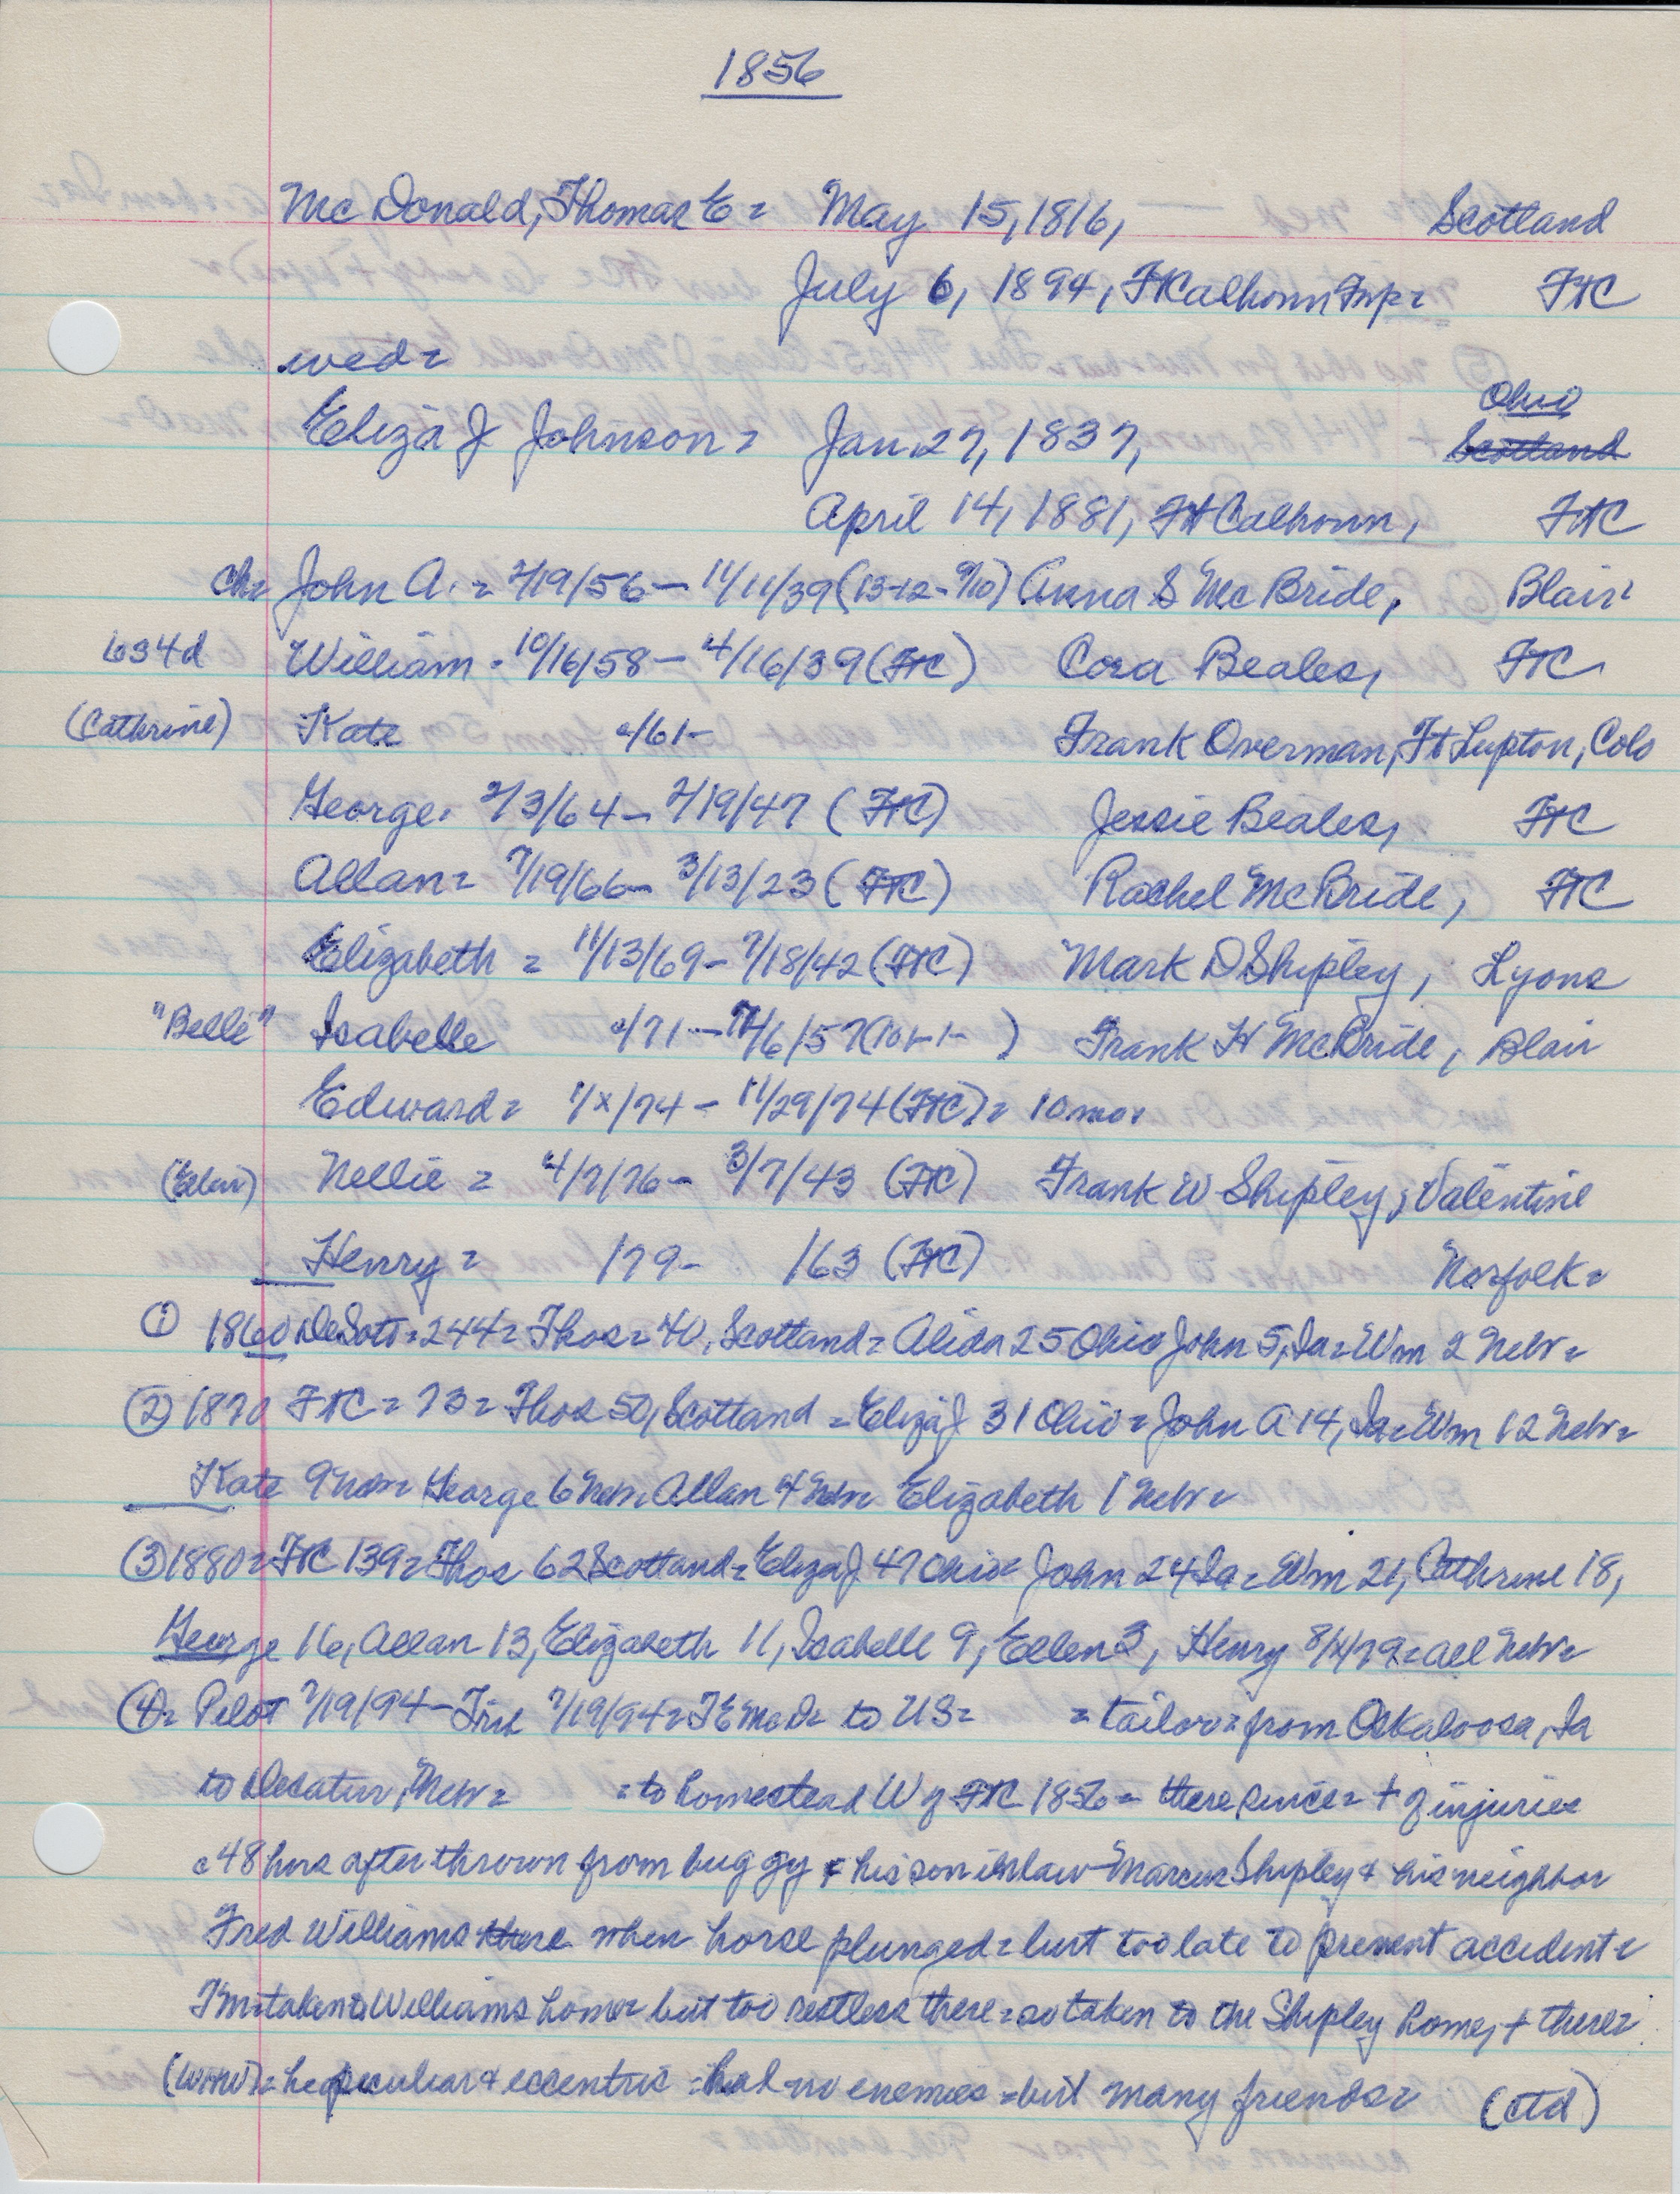 1856
McDonald, Thomas E = May 15, 1816, Scotland
July 6, 1894, FtCalhoun Twp = FtC
wed =
Ohio
Eliza J Johnson = Jan 27, 1837, Scotland
April 14, 1881, Ft Calhoun, FtC
ch = John A. = 2/19/56 - 11/11/39 (13-12-9/10) Anna S McBride, Blair
634d William. 10/16/58 - 4/16/39 (FtC) Cora Beales, FtC
(Cathrine) Kate /61- Frank Overman, Ft Lupton, Colo
George. 2/3/64 - 2/19/47 (FtC) Jessie Beales, FtC
Allan = 7/19/66 - 3/13/23 (FtC) Rachel McBride, FtC
Elizabeth = 11/13/69 - 7/18/42 (FtC) Mark D Shipley, Lyons
"Belle" Isabelle /71 - /6/57 (101-1- ) Frank H McBride, Blair
Edward = 1/x/74 - 11/29/74 (FtC) = 10 mos
(Ellen) Nellie = 4/7/76 - 3/7/43 (FtC) Frank W Shipley, Valentine
Henry = /79- /63 (FtC) Norfolk =
(1) 1860 DeSoto = 244 = Thos = 40, Scotland = Alida 25 Ohio John 5, Ia = Wm 2 Nebr =
(2) 1870 FtC = 73 = Thos 50, Scotland = Eliza J 31 Ohio = John A 14, Ia = Wm 12 Nebr =
Kate 9 Nebr George 6 Nebr Allan 4 Nebr Elizabeth 1 Nebr =
(3) 1880 = FtC 139 = Thos 62 Scotland = Eliza J 47 Ohio = John 24 Ia = Wm 21, Cathrine 18,
George 16, Allan 13, Elizabeth 11, Isabelle 9, Ellen 3, Henry 8/x/79 = all Nebr =
(4) = Pilot 7/19/94 - Trib 7/19/94 = TEMcD = to US = = tailor = from Oskaloosa, Ia
to Decatur, Nebr = = to homestead W of FtC 1856 = there since = + of injuries
c 48 hrs after thrown from buggy & his son in law Marcus Shipley & his neighbor
Fred Williams there when horse plunged = but too late to prevent accident =
Tm = taken to Williams home but too restless there = so taken to the Shipley home, + there =
(WHW) = he peculiar & eccentric = had no enemies = but many friends = (ctd)